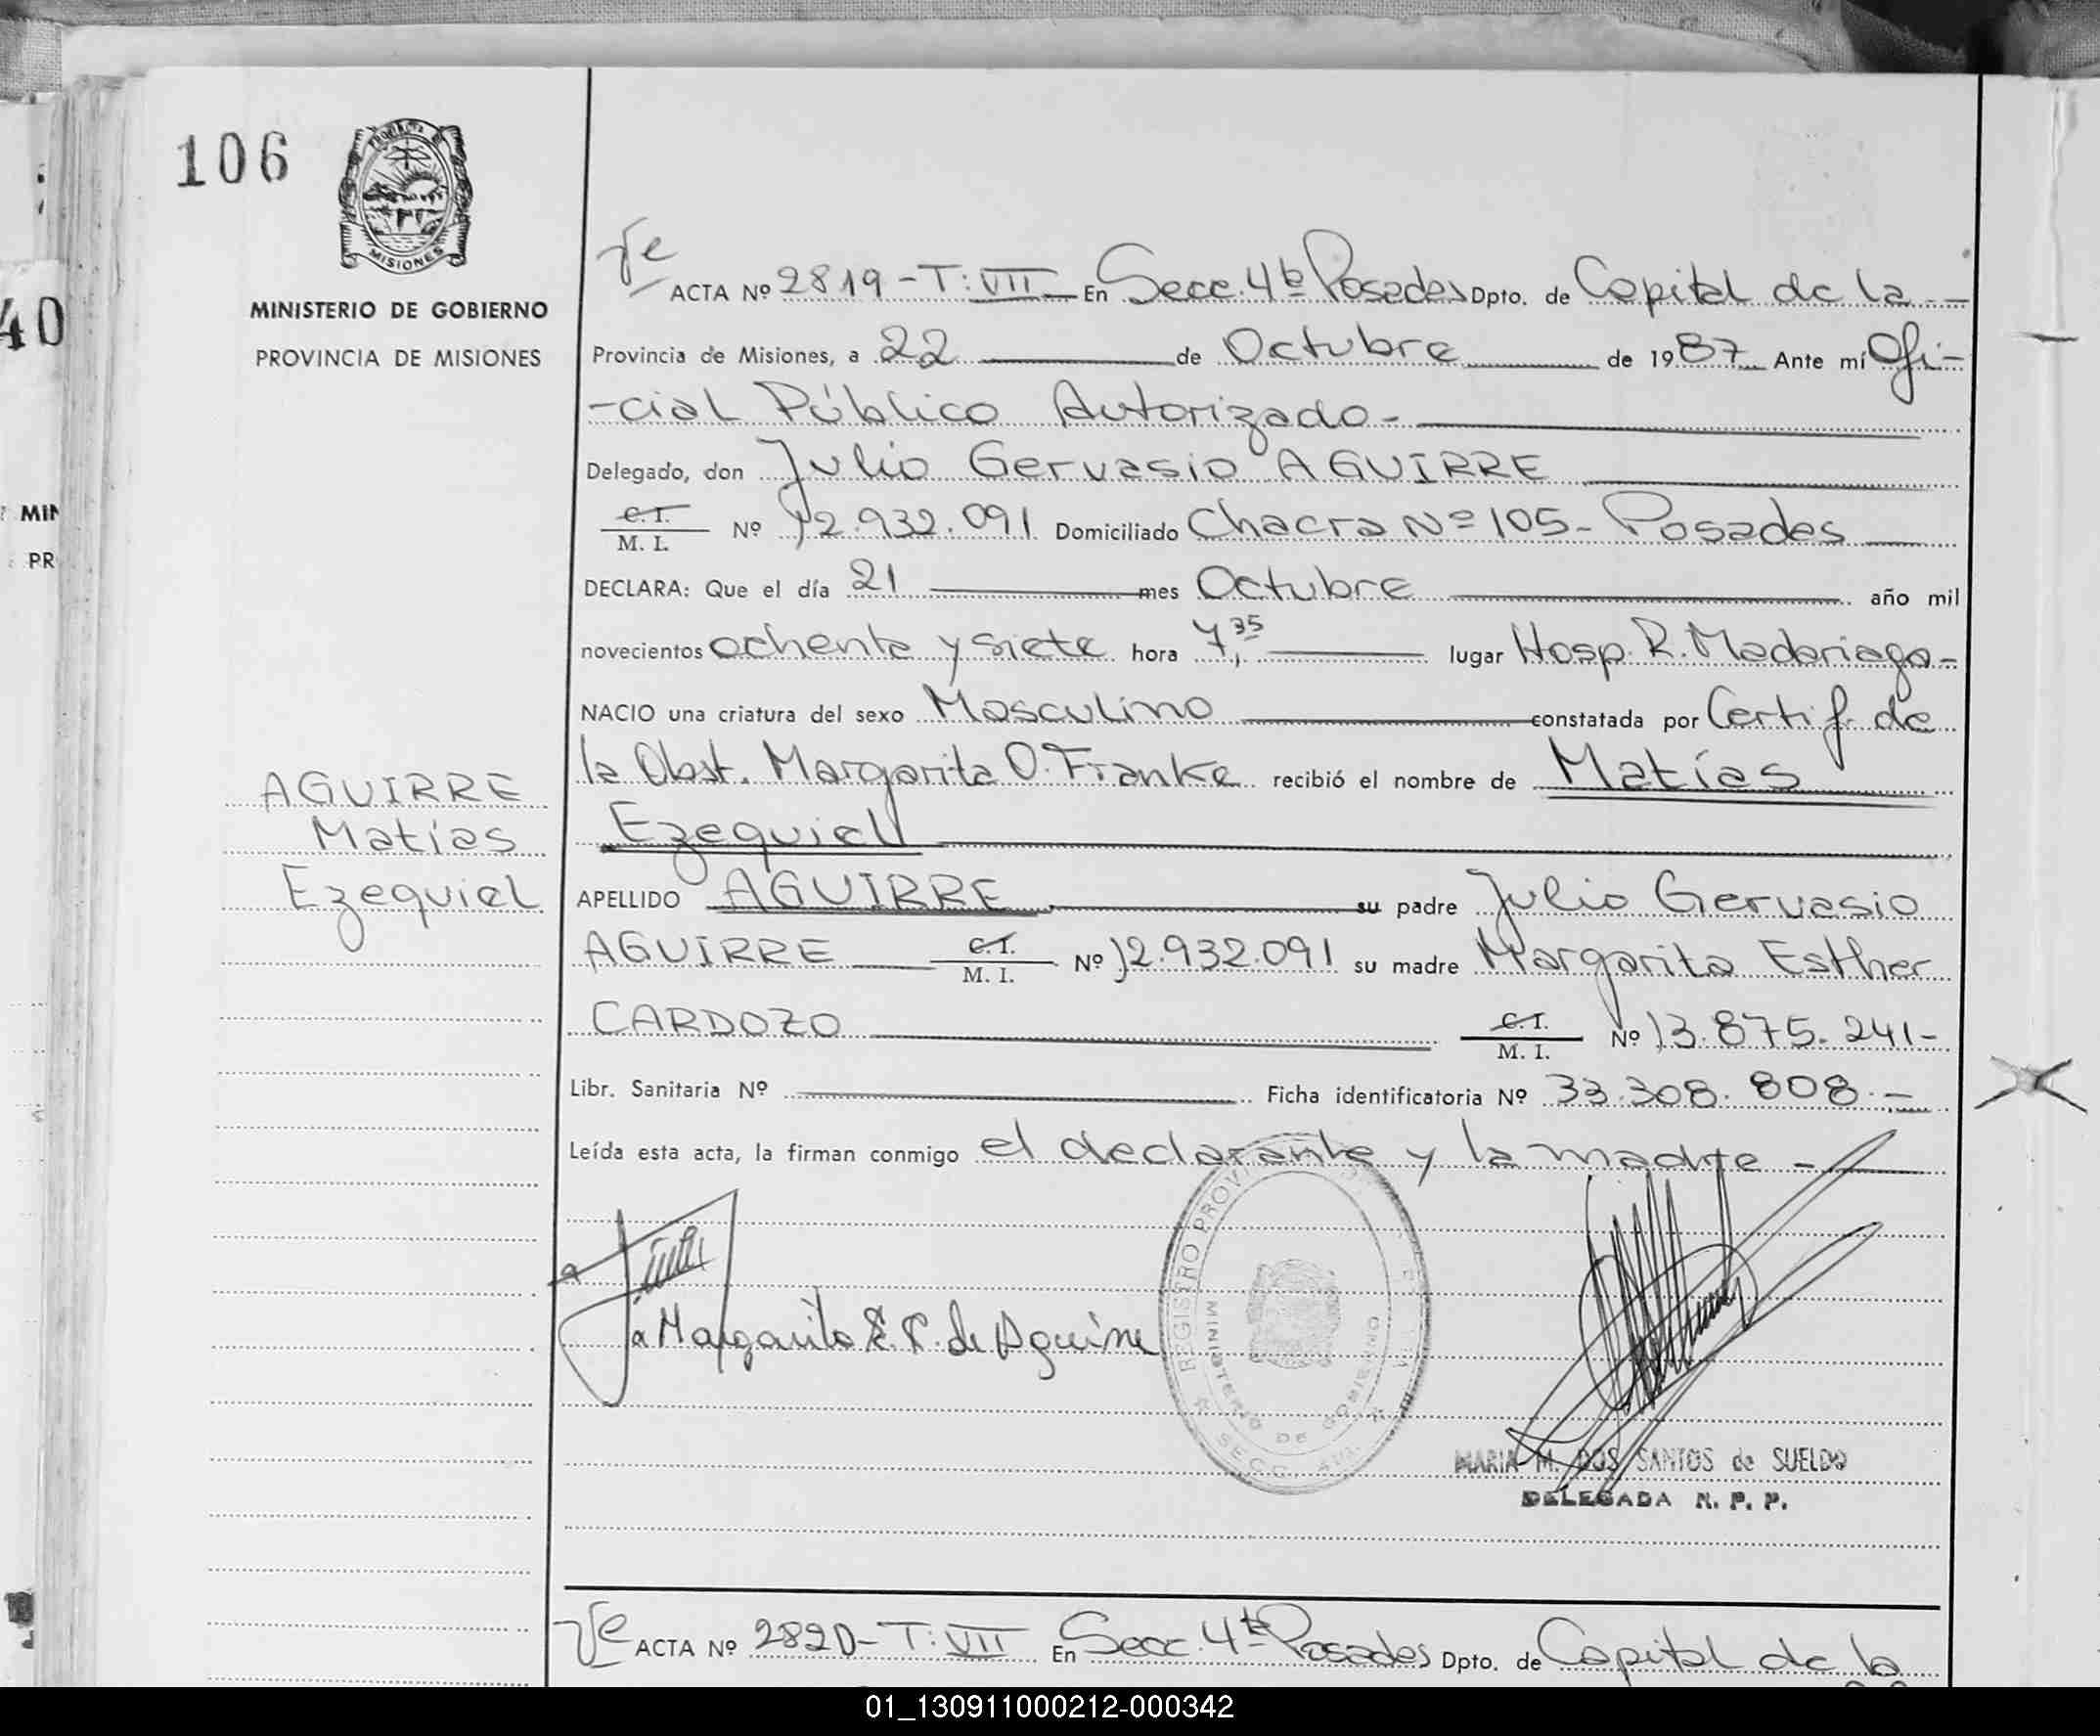 106
PROVINCIA DE
MISIONES
MINISTERIO DE GOBIERNO
PROVINCIA DE MISIONES
40
MIN
PR
AGUIRRE
Matías
Ezequiel
ACTA Nº 2819-T:VII En Secc. 4ta Posadas Dpto. de Capital de la -
Provincia de Misiones, a 22 de Octubre de 1987 Ante mí Ofi-
-cial Público Autorizado-
Delegado, don Julio Gervasio AGUIRRE
C.I. / M. I. Nº 12.932.091 Domiciliado Chacra Nº 105- Posadas
DECLARA: Que el día 21 mes Octubre año mil
novecientos ochenta y siete hora 7,35 lugar Hosp. R. Madariaga-
NACIO una criatura del sexo Masculino constatada por Certif. de
la Obst. Margarita O. Franke recibió el nombre de Matías
Ezequiel
APELLIDO AGUIRRE su padre Julio Gervasio
AGUIRRE C.I. / M. I. Nº 12.932.091 su madre Margarita Esther
CARDOZO C.I. / M. I. Nº 13.875.241-
Libr. Sanitaria Nº Ficha identificatoria Nº 33.308.808.-
Leída esta acta, la firman conmigo el declarante y la madre -
Margarita E. C. de Aguirre
REGISTRO PROV
MINISTERIO DE GOBIERNO
SECC.
MARIA M. DOS SANTOS de SUELDO
DELEGADA R. P. P.
ACTA Nº 2820-T:VII En Secc. 4ta Posadas Dpto. de Capital de la
01_130911000212-000342